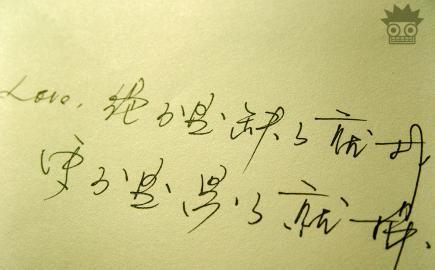 Love. 绝不是缺了就找,
更不是累了就换.